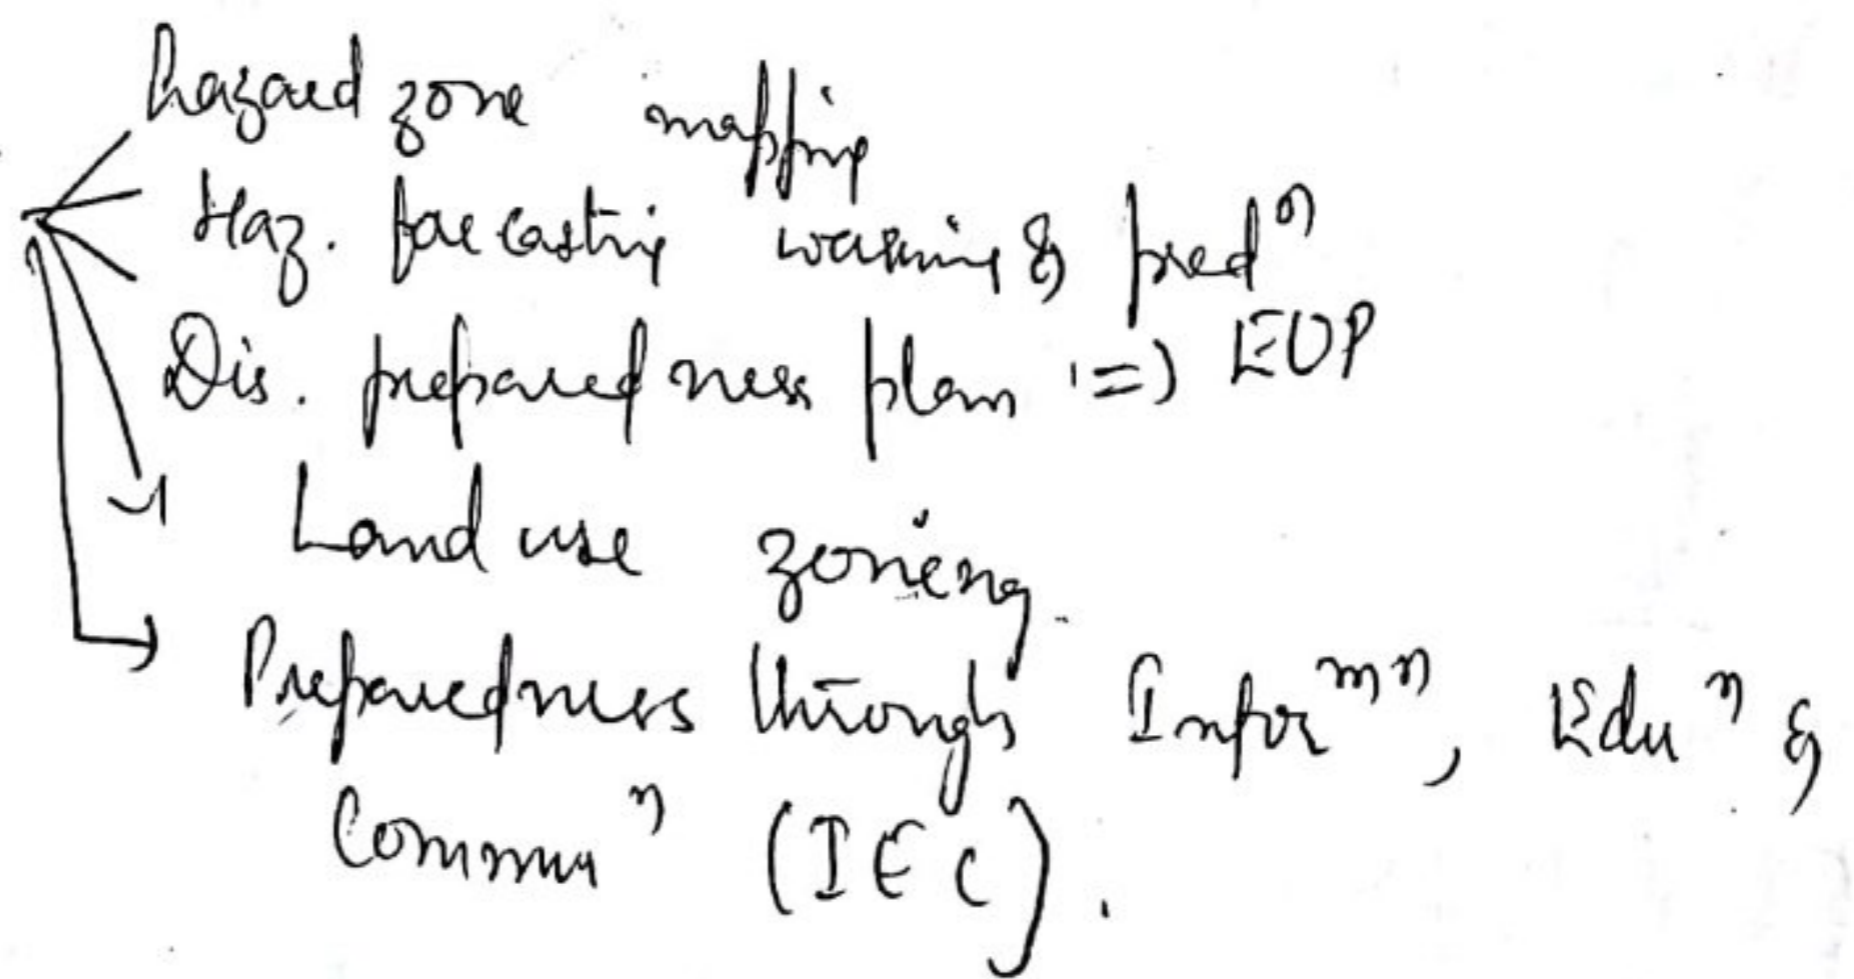 hazard zone mapping
Haz. forecasting warning & predⁿ
Dis. preparedness plan => EOP
Land use zoning.
Preparedness through Inforᵐⁿ, Eduⁿ &
Communⁿ (IEC).